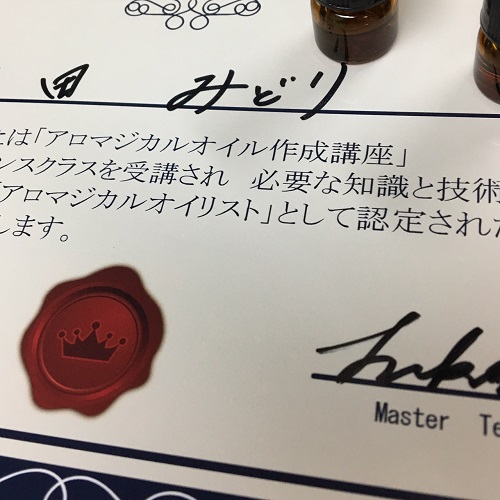 田 みどり
は「アロマジカルオイル作成講座」
ンスクラスを受講され 必要な知識と技術
「アロマジカルオイリスト」として認定された
します。
Master Te